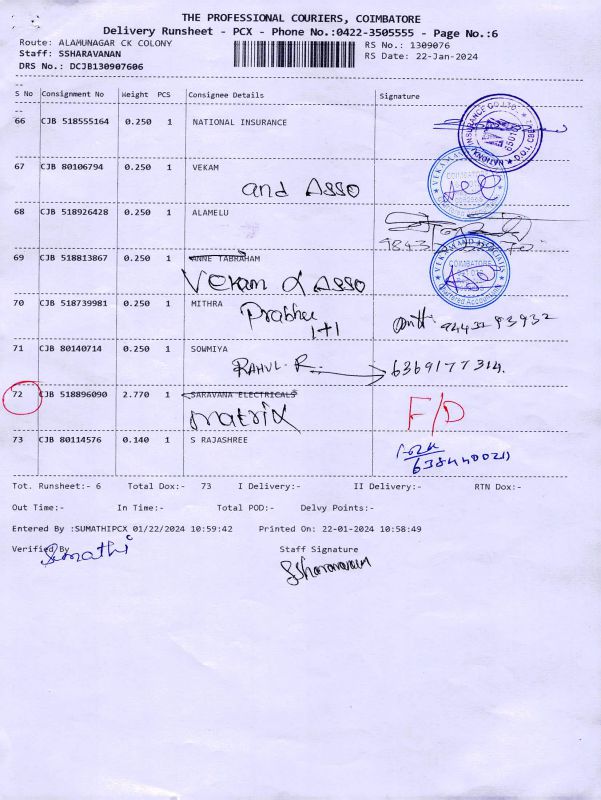 THE PROFESSIONAL COURIERS, COIMBATORE
Delivery Runsheet - PCX - Phone No.:0422-3505555 - Page No.:6
Route: ALAMUNAGAR CK COLONY RS No.: 1309076
Staff: SSHARAVANAN RS Date: 22-Jan-2024
DRS No.: DCJB130907606
S No Consignment No Weight PCS Consignee Details Signature
66 CJB 518555164 0.250 1 NATIONAL INSURANCE
67 CJB 80106794 0.250 1 VEKAM
and Asso
68 CJB 518926428 0.250 1 ALAMELU
69 CJB 518813867 0.250 1 ANNE TABRAHAM
Vekam & Asso
70 CJB 518739981 0.250 1 MITHRA
Prabhu
1+1
71 CJB 80140714 0.250 1 SOWMIYA
RAHUL. R 6369177314.
72 CJB 518896090 2.770 1 SARAVANA ELECTRICALS
Matrix F/D
73 CJB 80114576 0.140 1 S RAJASHREE
Tot. Runsheet:- 6 Total Dox:- 73 I Delivery:- II Delivery:- RTN Dox:-
Out Time:- In Time:- Total POD:- Delvy Points:-
Entered By :SUMATHIPCX 01/22/2024 10:59:42 Printed On: 22-01-2024 10:58:49
Verified By Staff Signature
Sumathi SSharavanan